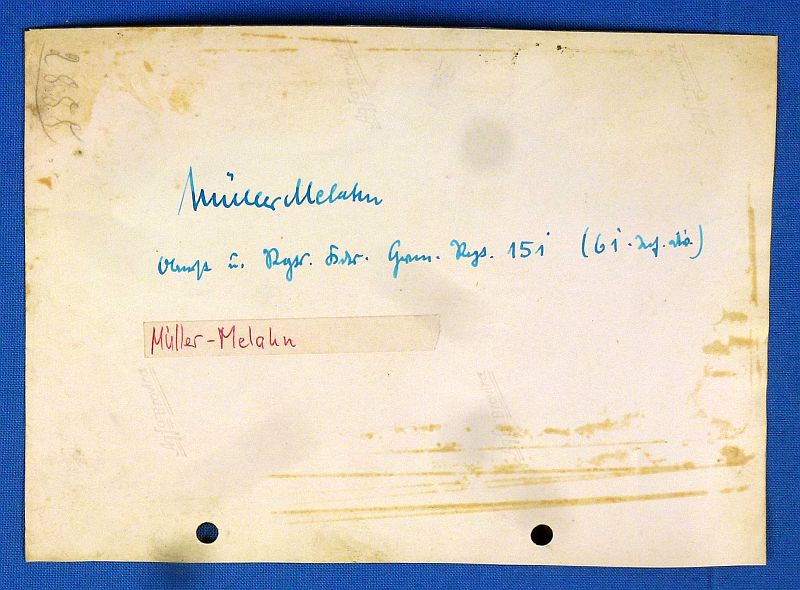 Müller Melahn
Oberst u. Rgts. Kdr. Gren. Regt. 151 (61. Inf. Div.)
Müller-Melahn